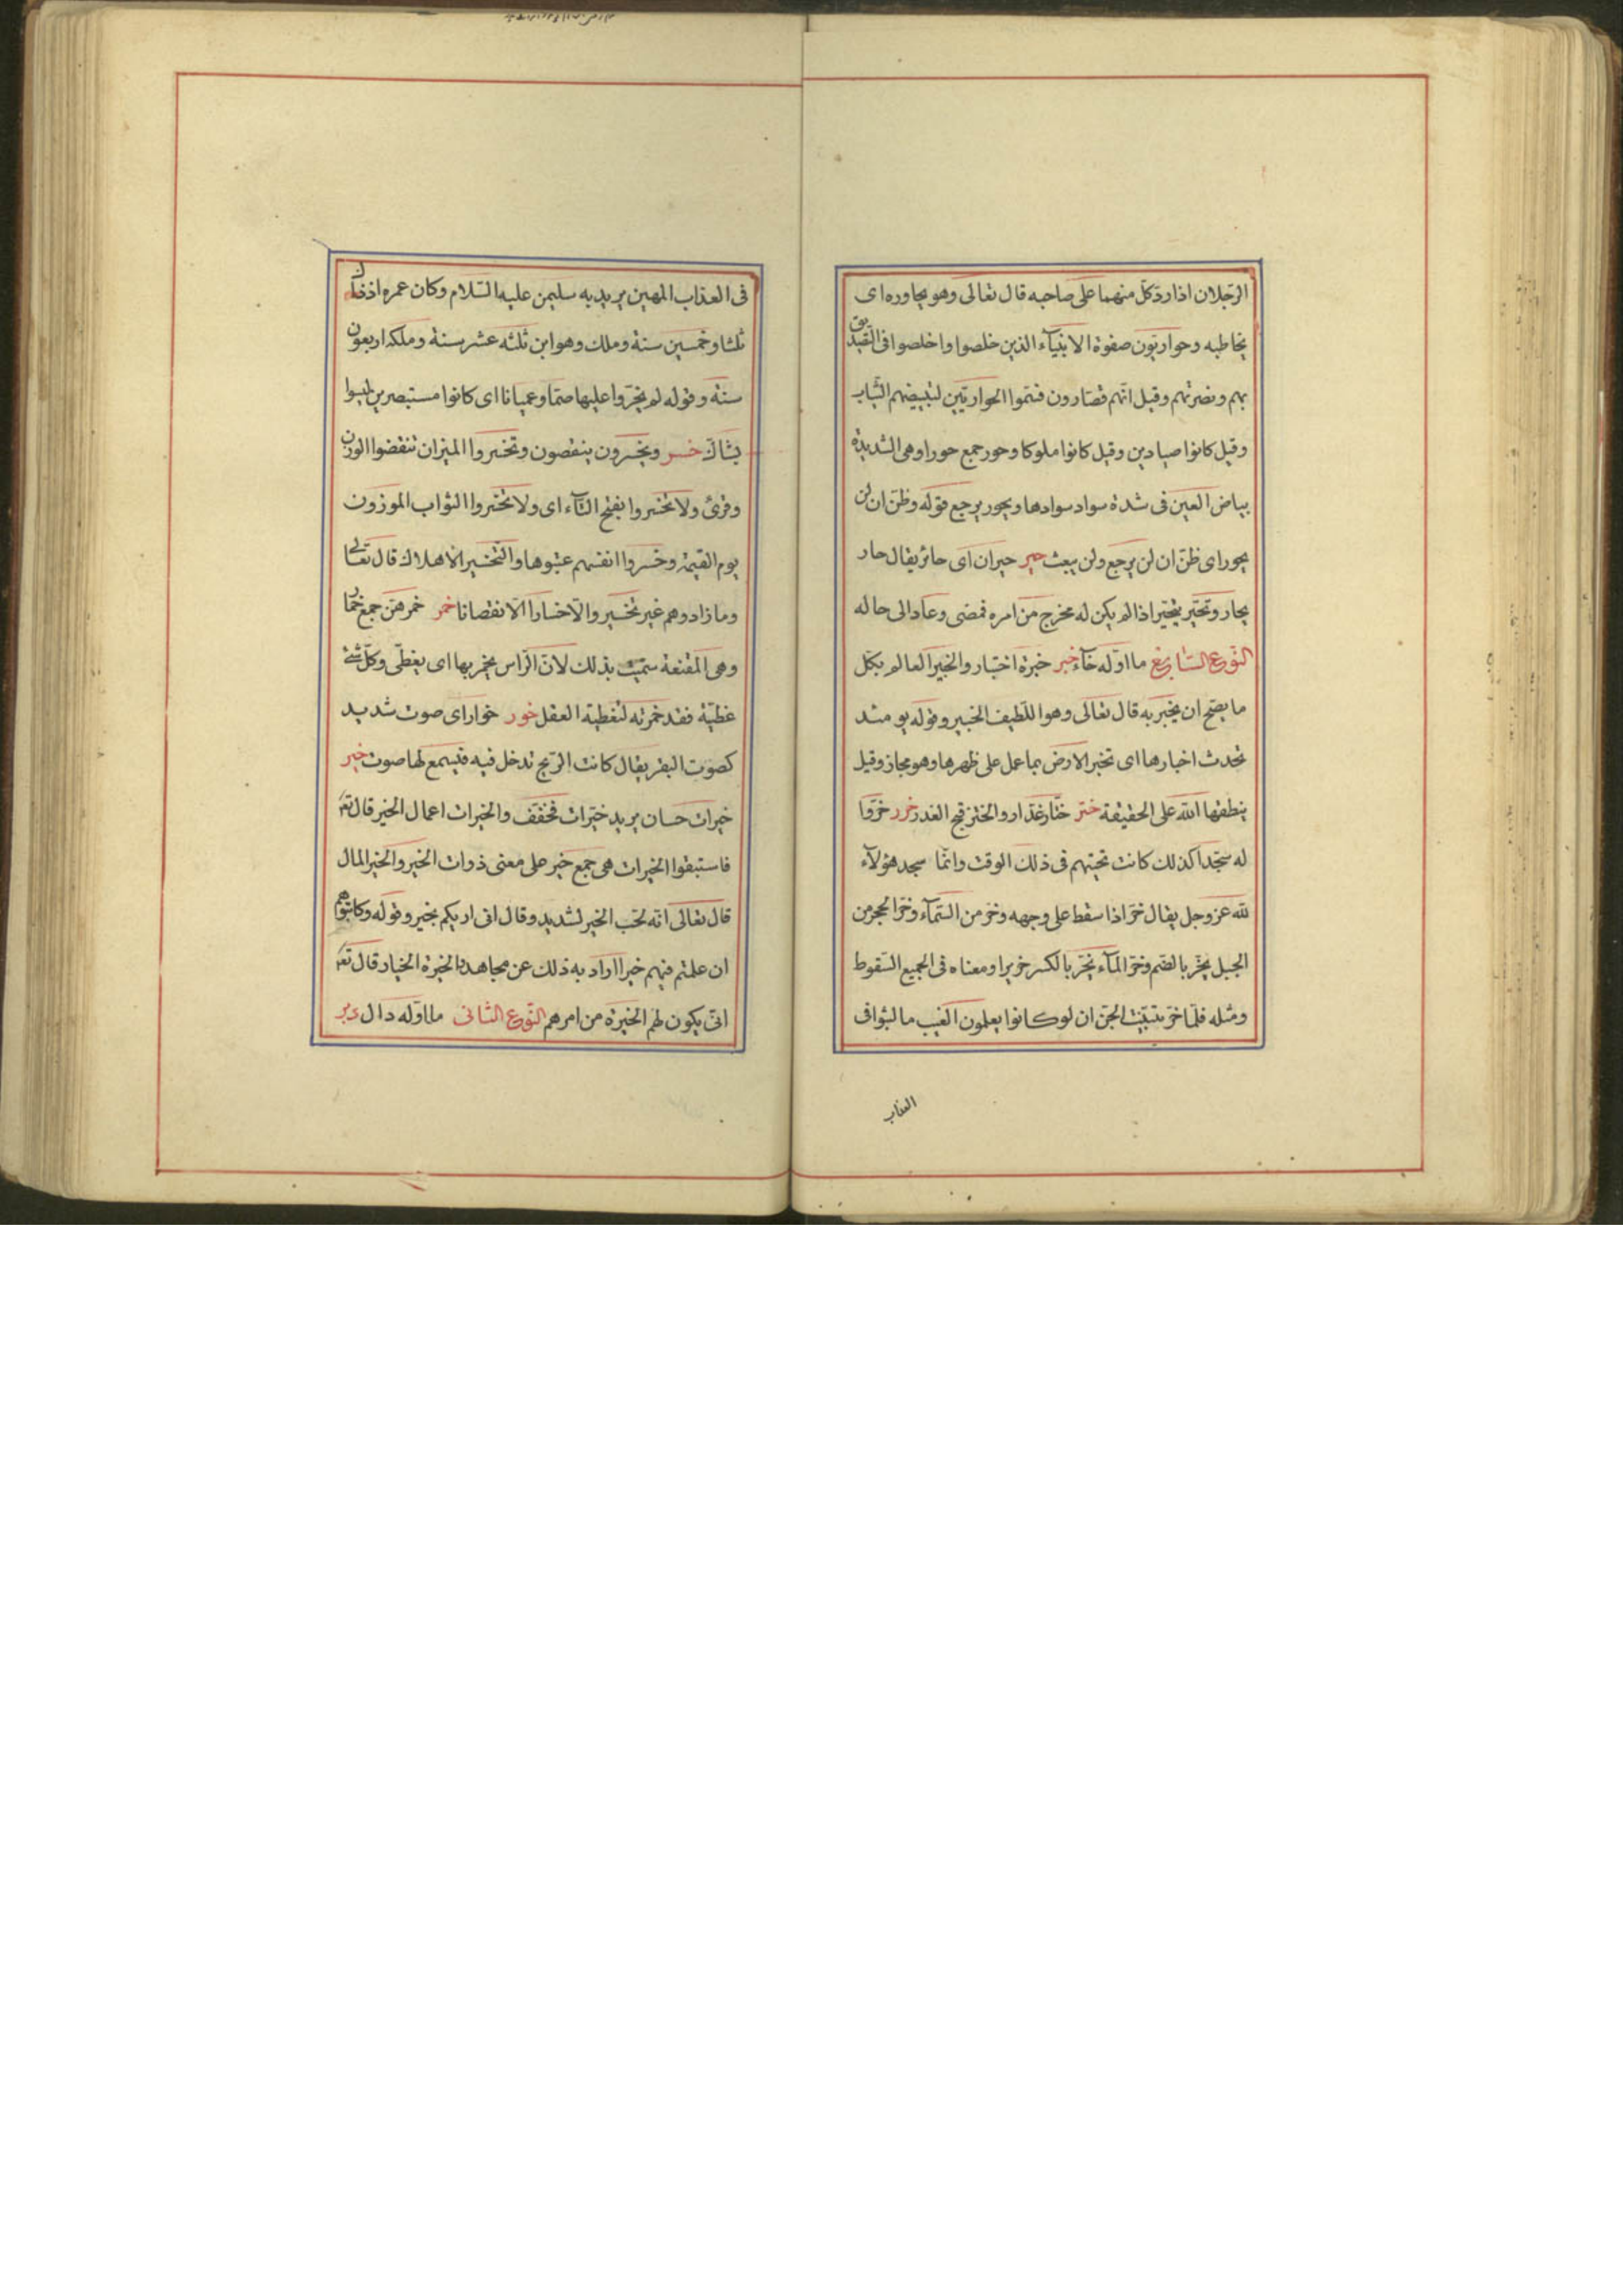 الرجلان اذا ردّ كلّ منهما على صاحبه قال تعالى وهو يحاوره اى
يخاطبه وحواريّون صفوة الانبيآء الذين خلصوا واخلصوا فى التصديق
بهم ونصرتهم وقيل انّهم قصّارون فسمّوا الحواريّين لتبييضهم الثياب
وقيل كانوا صيادين وقيل كانوا ملوكا وحور جمع حورا وهى الشديدة
بياض العين فى شدة سواد سوادها ويحور يرجع قوله وظنّ ان لن
يحور اى ظنّ ان لن يرجع ولن يبعث حير حيران اى حائر يقال حار
يحار وتحيّر يتحيّر اذا لم يكن له مخرج من امره فمضى وعاد الى حاله
النّوع السّابع ما اوّله خآء خبر خبرة اختبار والخبير العالم بكلّ
ما يصحّ ان يخبر به قال تعالى وهو اللّطيف الخبير وقوله يومئذ
تحدث اخبارها اى تخبر الارض بما عمل على ظهرها وهو مجاز وقيل
ينطقها الله على الحقيقة ختر ختّار غدّار والختر قبح الغدر خرر خرّوا
له سجّدا كذلك كانت تحيتهم فى ذلك الوقت وانّما سجد هؤلآء
لله عز وجل يقال خرّ اذا سقط على وجهه وخر من السّمآء وخرّ الحجر من
الجبل يخرّ بالضّم وخرّ المآء يخرّ بالكسر خريرا ومعناه فى الجميع السّقوط
ومثله فلمّا خرّ تبيّنت الجنّ ان لو كانوا يعلمون الغيب ما لبثوا فى
العذاب
فى العذاب المهين يريد به سليمن عليه السّلام وكان عمره اذ ذاك
ثلثا وخمسين سنة وملك وهو ابن ثلثه عشر سنة وملكه اربعون
سنة وقوله لم يخرّوا عليها صمّا وعميانا اى كانوا مستبصرين ليسوا
بشاك خسر ويخسرون ينقصون وتخسروا الميزان تنقضوا الوزن
وقرئ ولا تخسروا بفتح التّآء اى ولا تخسروا الثواب الموزون
يوم القيمة وخسروا انفسهم غبنوها والتّخسير الاهلاك قال تعالى
وما زادوهم غير تخسير والّا خسارا الّا نقصانا خمر خمرهنّ جمع خمار
وهى المقنعة سمّيت بذلك لانّ الرّاس يخمر بها اى يغطّى وكلّ شئ
غطّيته فقد خمرته لتغطية العقل خور خوار اى صوت شديد
كصوت البقر يقال كانت الرّيح تدخل فيه فيسمع لها صوت خير
خيرات حسان يريد خيّرات فخفّف والخيرات اعمال الخير قال تعالى
فاستبقوا الخيرات هى جمع خير على معنى ذوات الخير والخير المال
قال تعالى انه لحب الخير لشديد وقال انى اريكم بخير وقوله وكاتبوهم
ان علمتم فيهم خيرا اراد به ذلك عن مجاهد والخيرة الخيار قال تعالى
انّى يكون لهم الخيرة من امرهم النّوع الثانى ما اوّله دال دبر